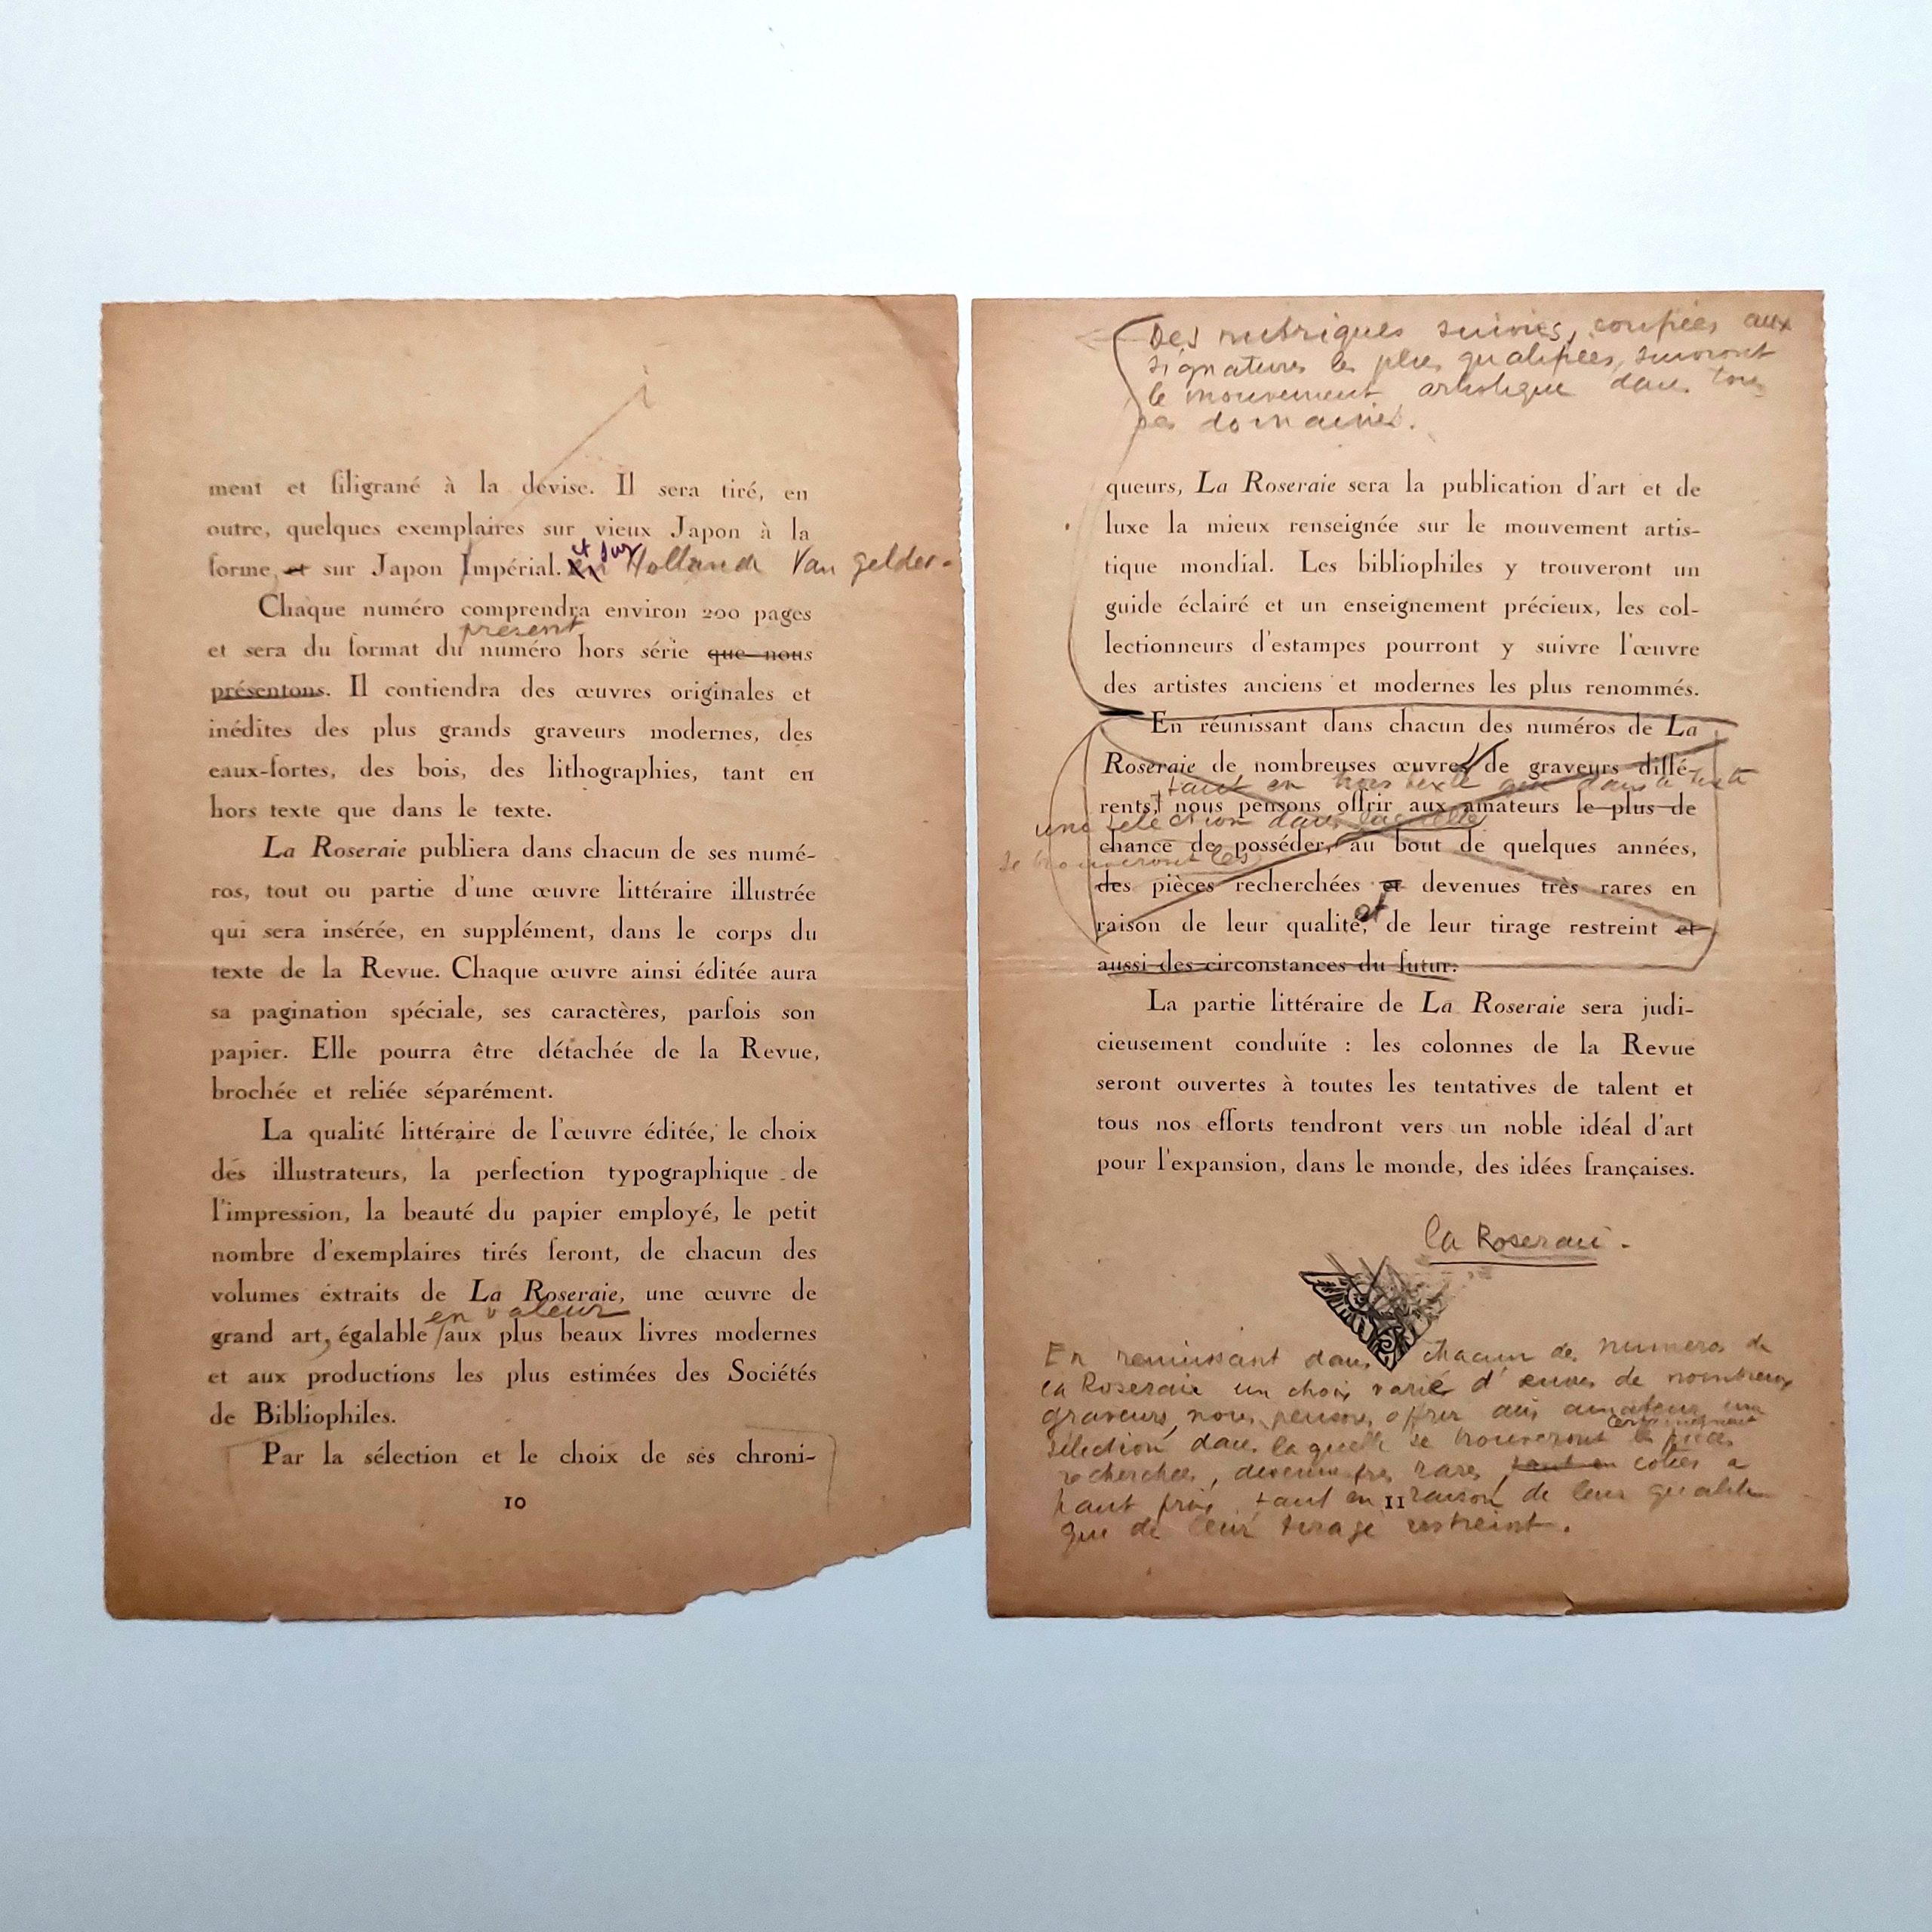 ment et filigrané à la devise. Il sera tiré, en
outre, quelques exemplaires sur vieux Japon à la
et sur
forme, et sur Japon Impérial. en Hollande Van Gelder.
Chaque numéro comprendra environ 200 pages
présent
et sera du format du numéro hors série que nous
présentons. Il contiendra des œuvres originales et
inédites des plus grands graveurs modernes, des
eaux-fortes, des bois, des lithographies, tant en
hors texte que dans le texte.
La Roseraie publiera dans chacun de ses numé-
ros, tout ou partie d'une œuvre littéraire illustrée
qui sera insérée, en supplément, dans le corps du
texte de la Revue. Chaque œuvre ainsi éditée aura
sa pagination spéciale, ses caractères, parfois son
papier. Elle pourra être détachée de la Revue,
brochée et reliée séparément.
La qualité littéraire de l'œuvre éditée, le choix
des illustrateurs, la perfection typographique de
l'impression, la beauté du papier employé, le petit
nombre d'exemplaires tirés feront, de chacun des
volumes extraits de La Roseraie, une œuvre de
en valeur
grand art, égalable aux plus beaux livres modernes
et aux productions les plus estimées des Sociétés
de Bibliophiles.
Par la sélection et le choix de ses chroni-
10
Des rubriques suivies, confiées aux
signatures les plus qualifiées, suivront
le mouvement artistique dans tous
ses domaines.
queurs, La Roseraie sera la publication d'art et de
luxe la mieux renseignée sur le mouvement artis-
tique mondial. Les bibliophiles y trouveront un
guide éclairé et un enseignement précieux, les col-
lectionneurs d'estampes pourront y suivre l'œuvre
des artistes anciens et modernes les plus renommés.
En réunissant dans chacun des numéros de La
Roseraie de nombreuses œuvres de graveurs diffé-
tant en hors texte que dans le texte
rents, nous pensons offrir aux amateurs le plus de
une sélection dans laquelle
chance de posséder, au bout de quelques années,
se trouveront les
des pièces recherchées et devenues très rares en
et
raison de leur qualité, de leur tirage restreint et
aussi des circonstances du futur.
La partie littéraire de La Roseraie sera judi-
cieusement conduite : les colonnes de la Revue
seront ouvertes à toutes les tentatives de talent et
tous nos efforts tendront vers un noble idéal d'art
pour l'expansion, dans le monde, des idées françaises.
La Roseraie.
En réunissant dans chacun des numéros de
la Roseraie un choix varié d'œuvres de nombreux
graveurs, nous pensons offrir aux amateurs une
certainement
sélection dans laquelle se trouveront les pièces
recherchées, devenues très rares, tant en cotées à
haut prix, tant en raison de leur qualité
11
que de leur tirage restreint.